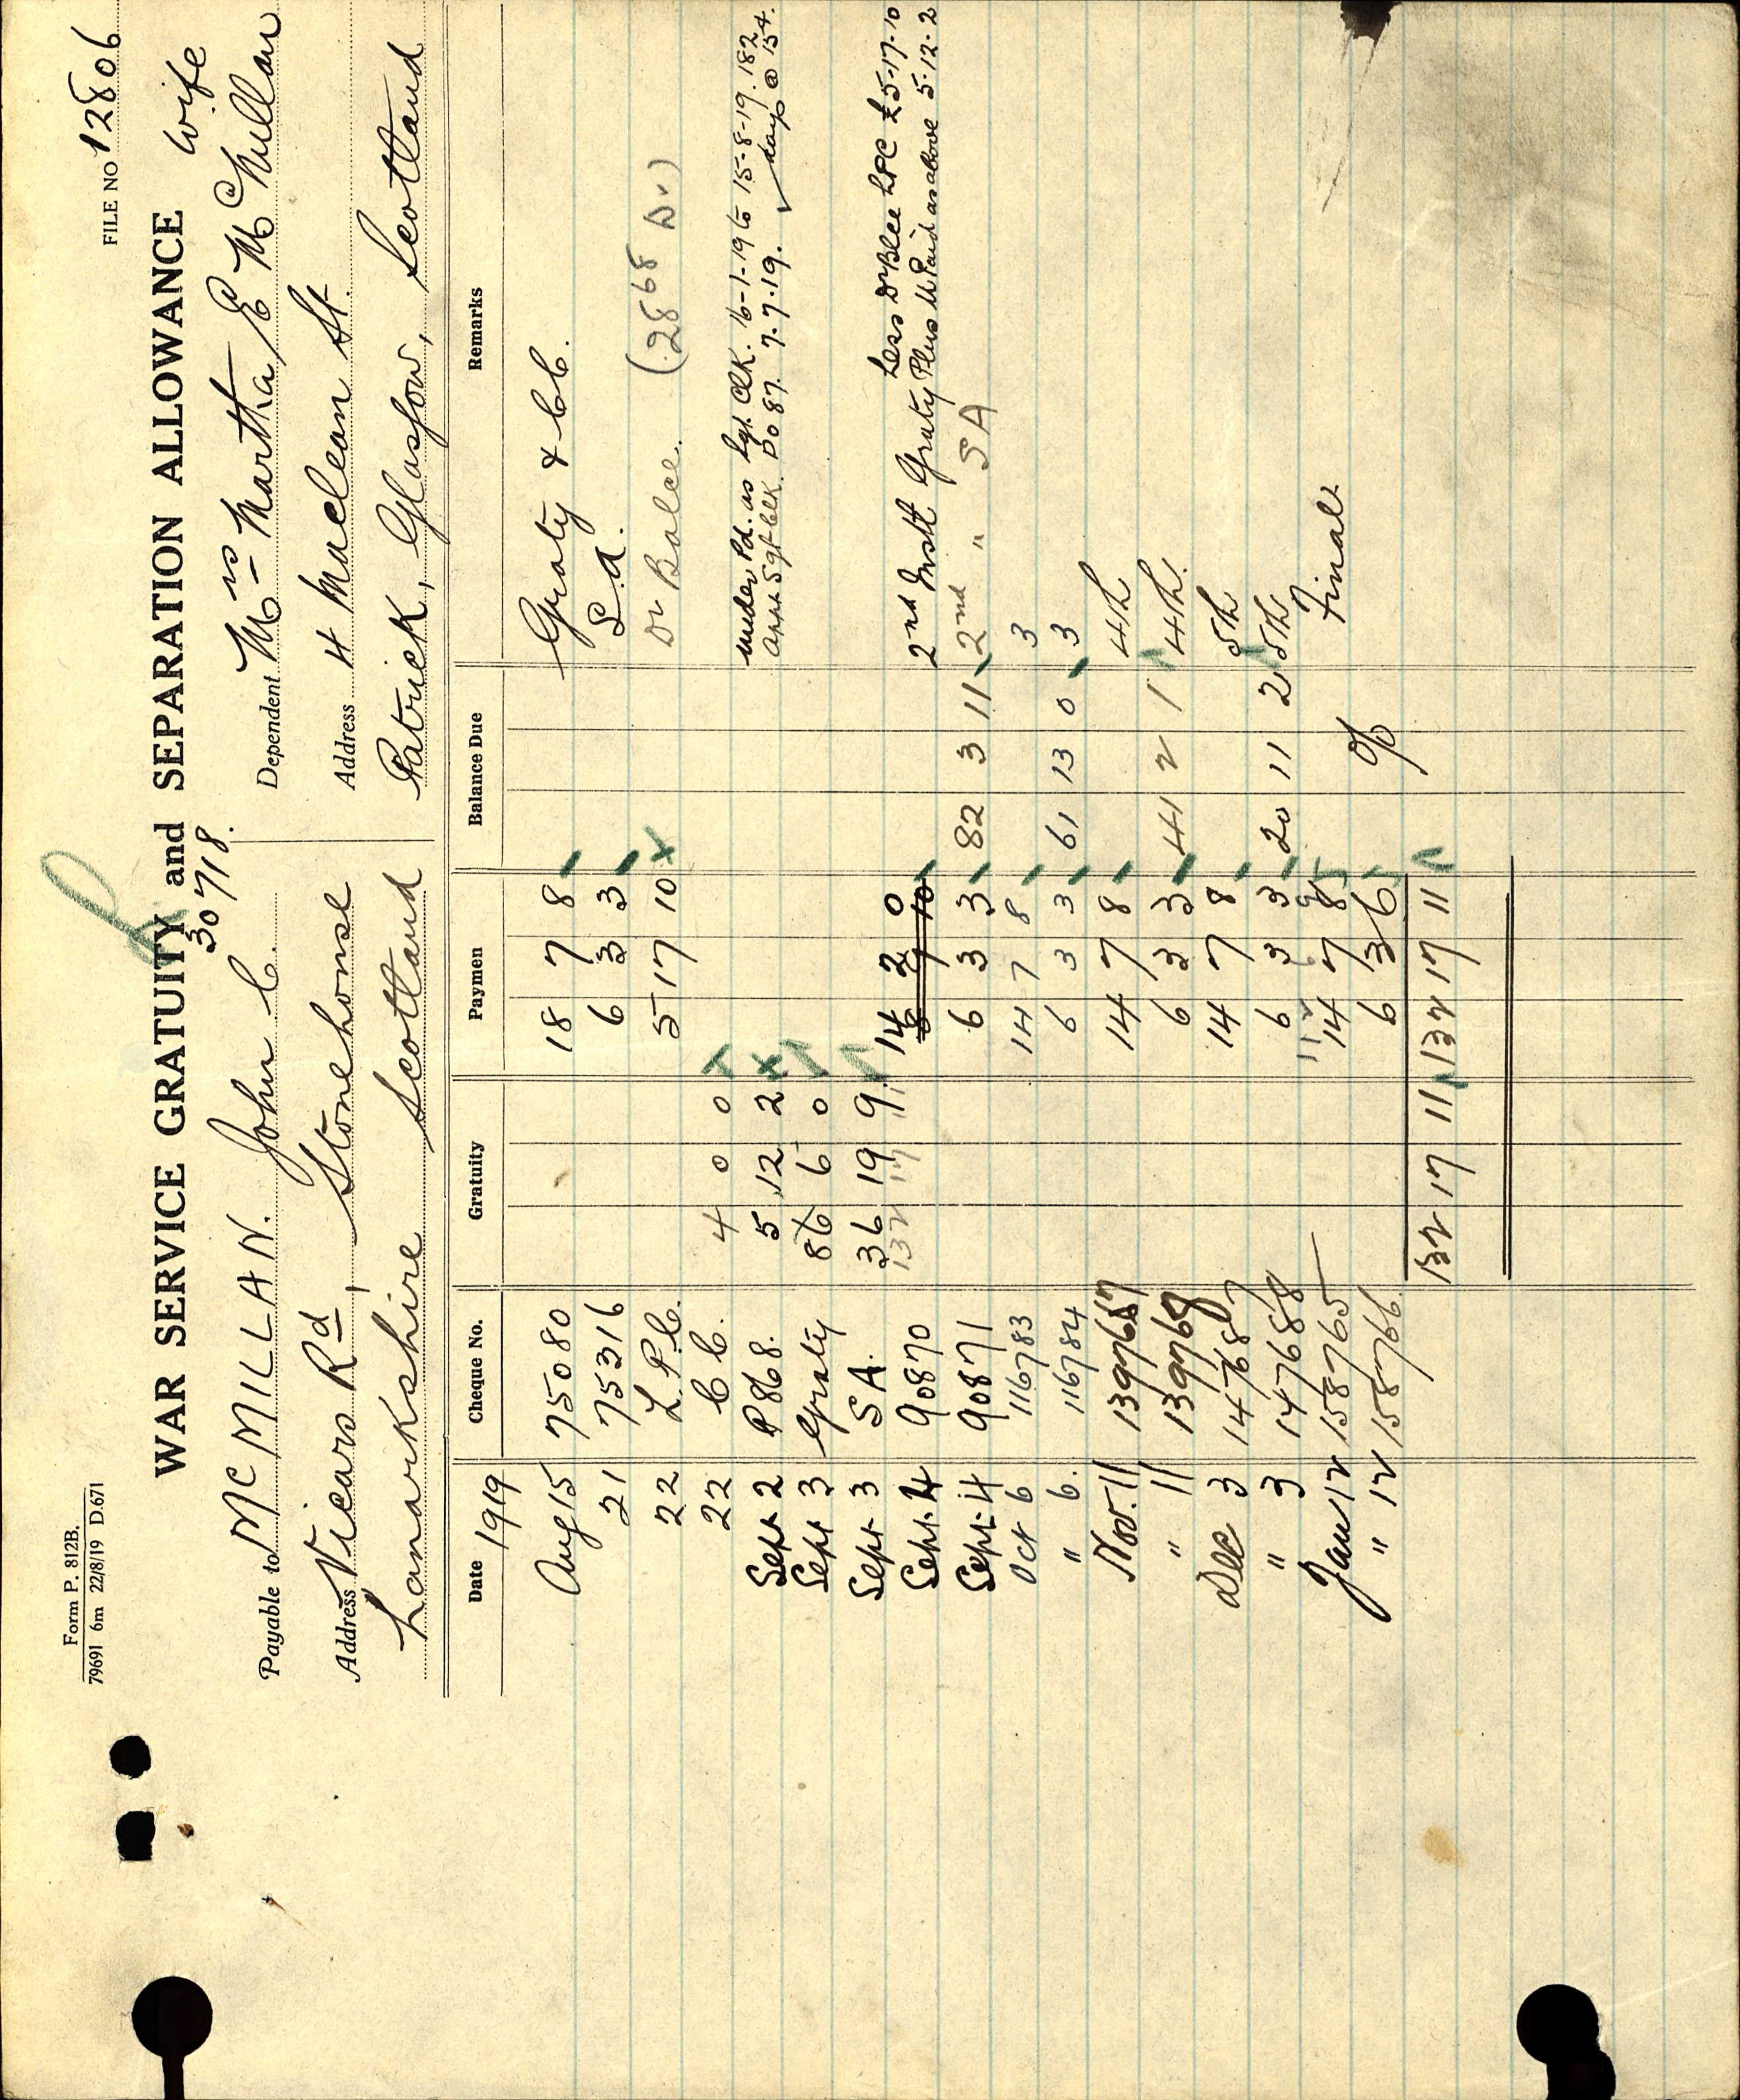 Form P. 812B.
79691 6m 22/8/19 D.671
FILE NO 12806
WAR SERVICE GRATUITY and SEPARATION ALLOWANCE
30718.
wife
Payable to McMILLAN. John C.
Dependent Mrs Martha E McMillan
Address Vicars Rd, Stonehouse
Address 4 Maclean St.
Lanarkshire Scotland
Patrick, Glasgow, Scotland
Date Cheque No. Gratuity Paymen Balance Due Remarks
1919
Aug 15 75080 18 7 8 Graty & C.C.
21 75316 6 3 3 S.A.
22 L.P.C. 5 17 10 Dr Balce. (2868 Dr)
22 C C. 4 0 0
Under Pd. as Sgt. Clk. 16-1-19 to 15-8-19. 182
Sept 2 P868. 5 12 2 Appt Sgt Clk. Do 87. 7-7-19. days @ 15¢.
Sept 3 Graty 86 6 0
Sept 3 S A. 36 19 9
132 17 11
Less Dr Blce LPC £5-17-10
Sept 4 90870 14 2 0 2nd Inst Graty Plus U Paid as above 5-12-2
Sept 4 90871 6 3 3 82 3 11 2nd " S A
Oct 6 116783 14 7 8 3
" 6. 116784 6 3 3 61 13 0 3
Nov. 11 139767 14 7 8 4th
" 11 139768 6 3 3 41 2 1 4th.
Dec 3 147687 14 7 8 5th
" 3 147688 6 3 3 20 11 2 5th
Jan 12 158765 14 7 8 Final
" 12 158766 6 3 6 %
132 17 11 132 17 11